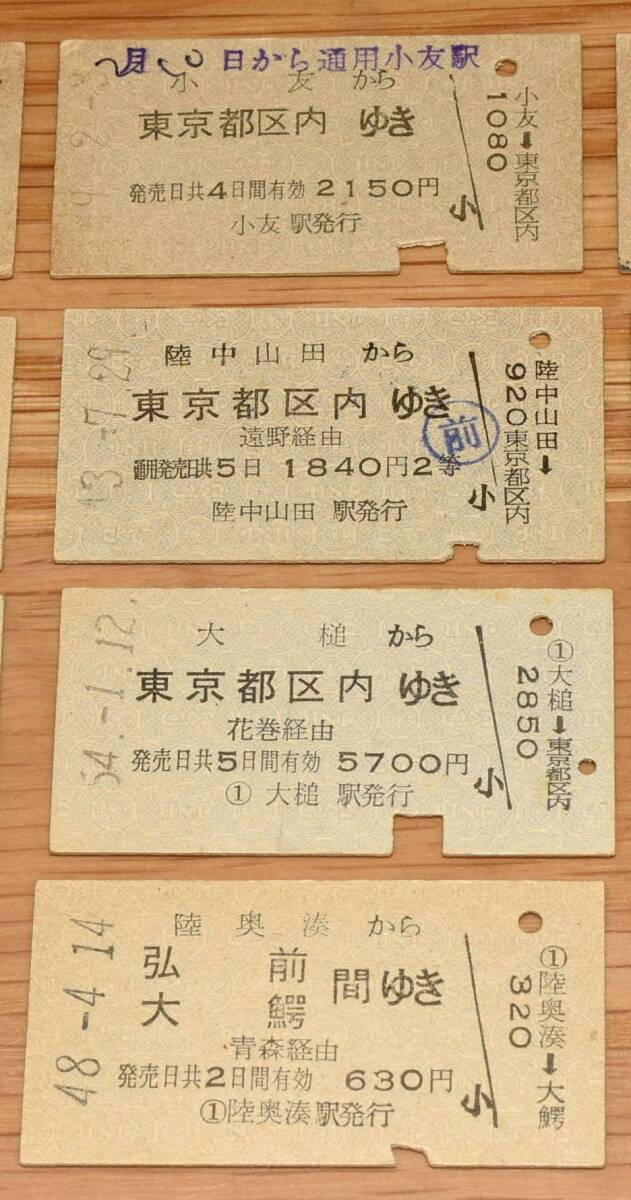 月 日から通用小友駅
小友から
東京都区内ゆき
発売日共4日間有効 2150円
小友駅発行
小
小友➡東京都区内
1080
陸中山田から
東京都区内ゆき
遠野経由
通用発売日共5日 1840円2等
陸中山田 駅発行
前
小
陸中山田➡
920東京都区内
-7.29
大槌から
東京都区内ゆき
花巻経由
発売日共5日間有効 5700円
① 大槌 駅発行
小
①大槌➡東京都区内
2850
54.-1.12.
陸奥湊から
弘前
大鰐
間ゆき
青森経由
発売日共2日間有効 630円
①陸奥湊駅発行
小
①陸奥湊➡大鰐
320
48-4.14